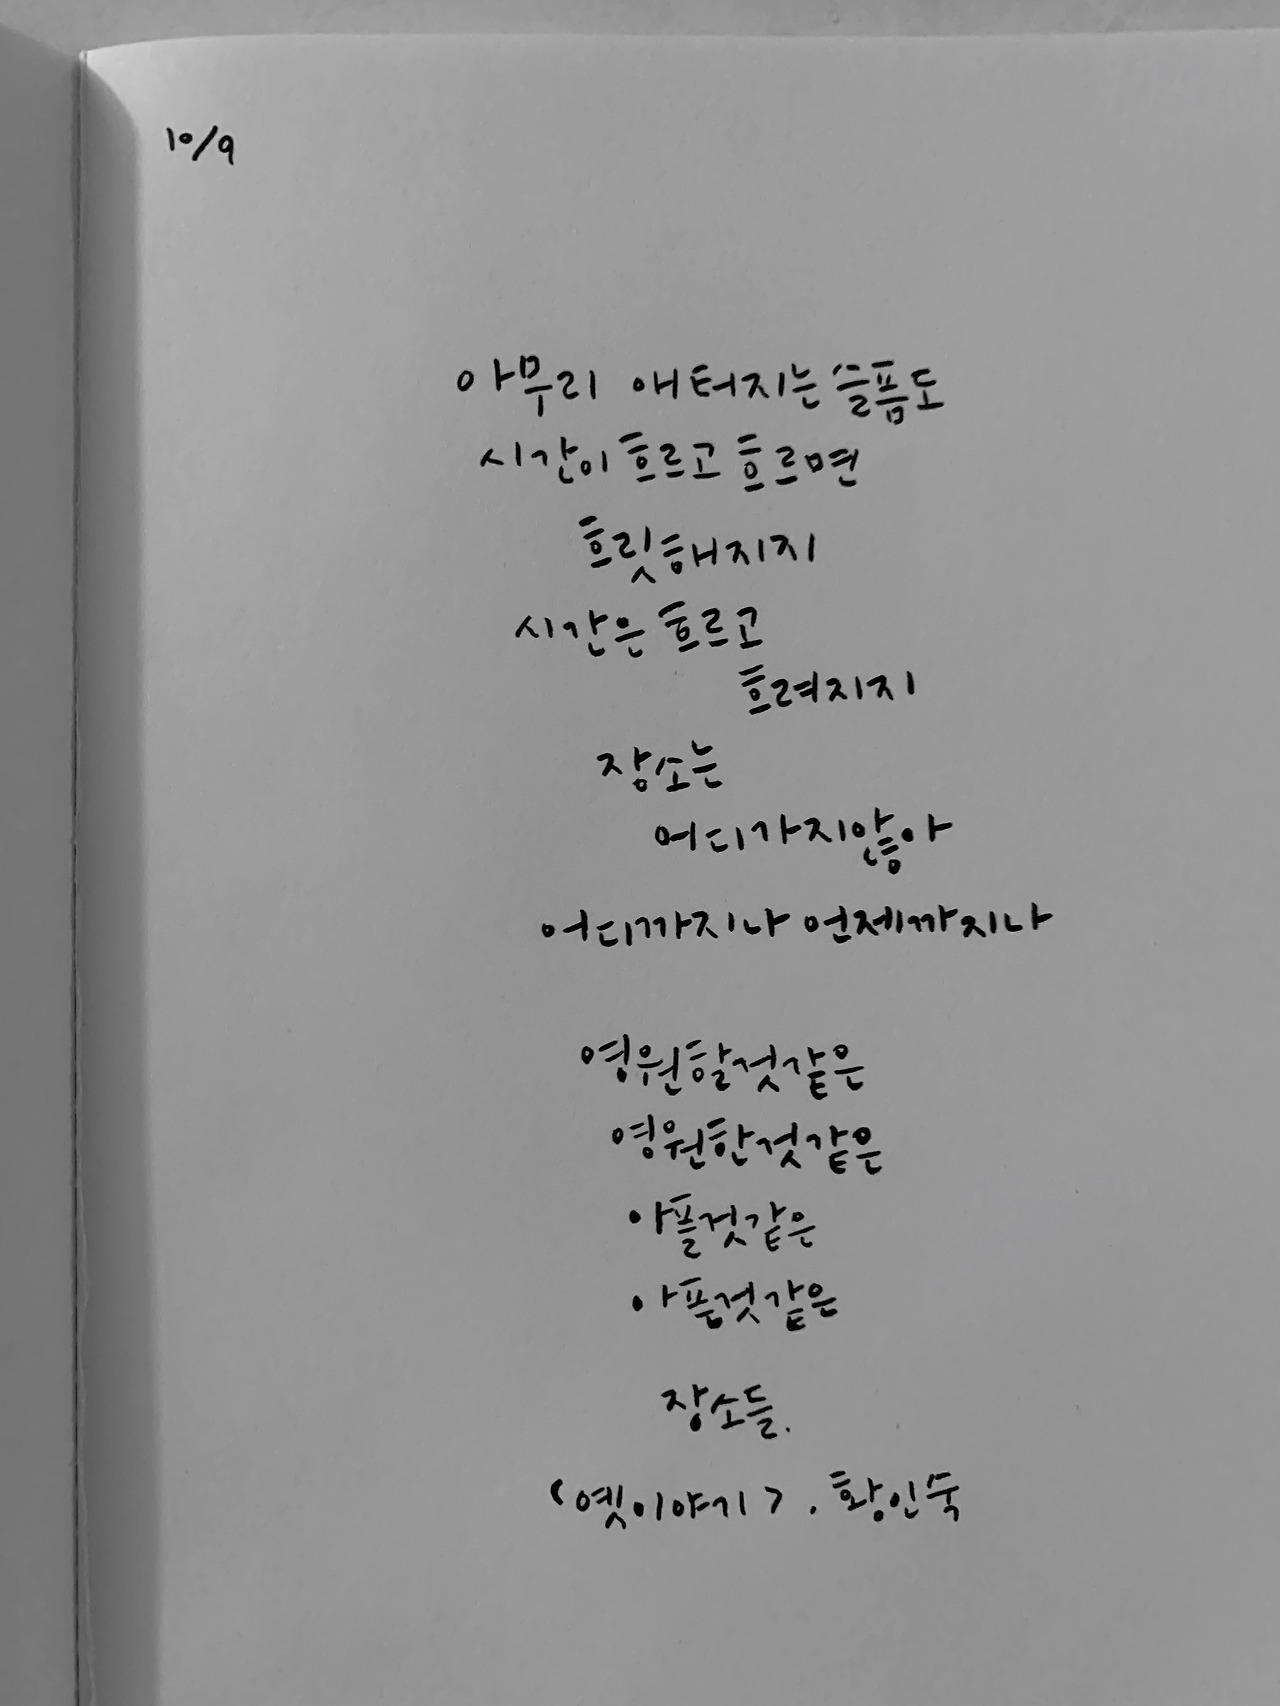 10/9
아무리 애터지는 슬픔도
시간이 흐르고 흐르면
흐릿해지지
시간은 흐르고
흐려지지
장소는
어디가지않아
어디까지나 언제까지나
영원할것같은
영원한것같은
아플것같은
아픈것같은
장소들.
<옛이야기>. 황인숙